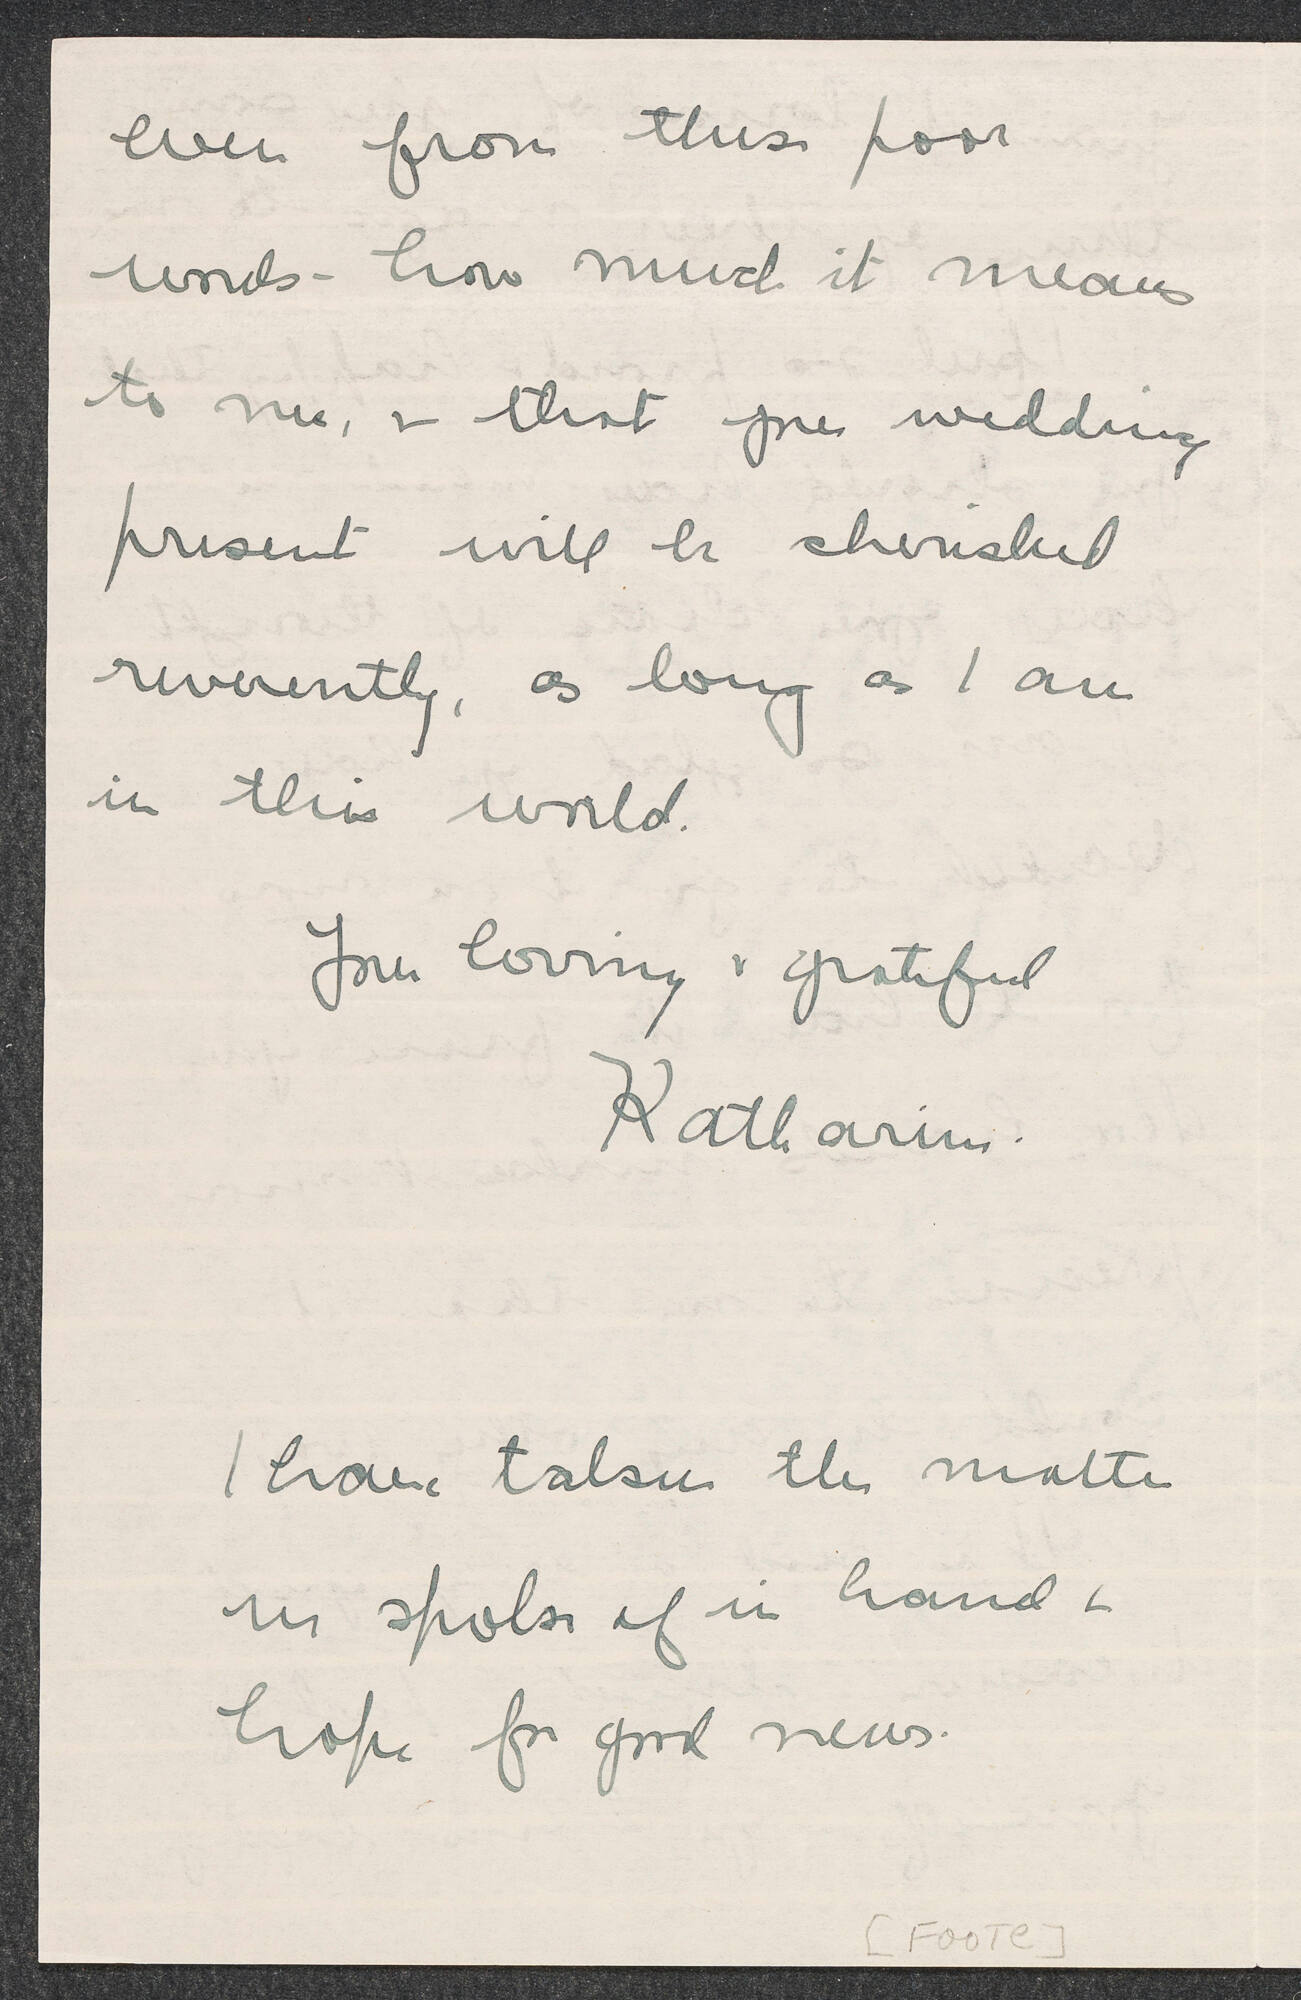 even from these poor
words - how much it means
to me, & that your wedding
present will be cherished
reverently, as long as I am
in this world.
Your loving & grateful
Katharine.
I have taken the matter
we spoke of in hand &
hope for good news.
[FOOTE]